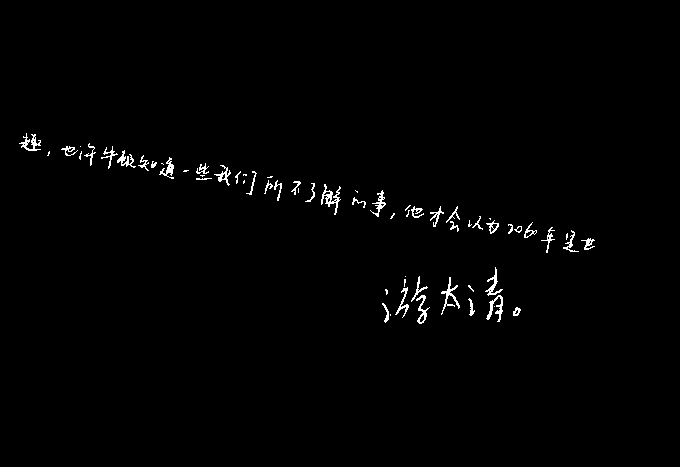 趣，也许牛顿知道一些我们所不了解的事，他才会以为2060年是世
游太清。